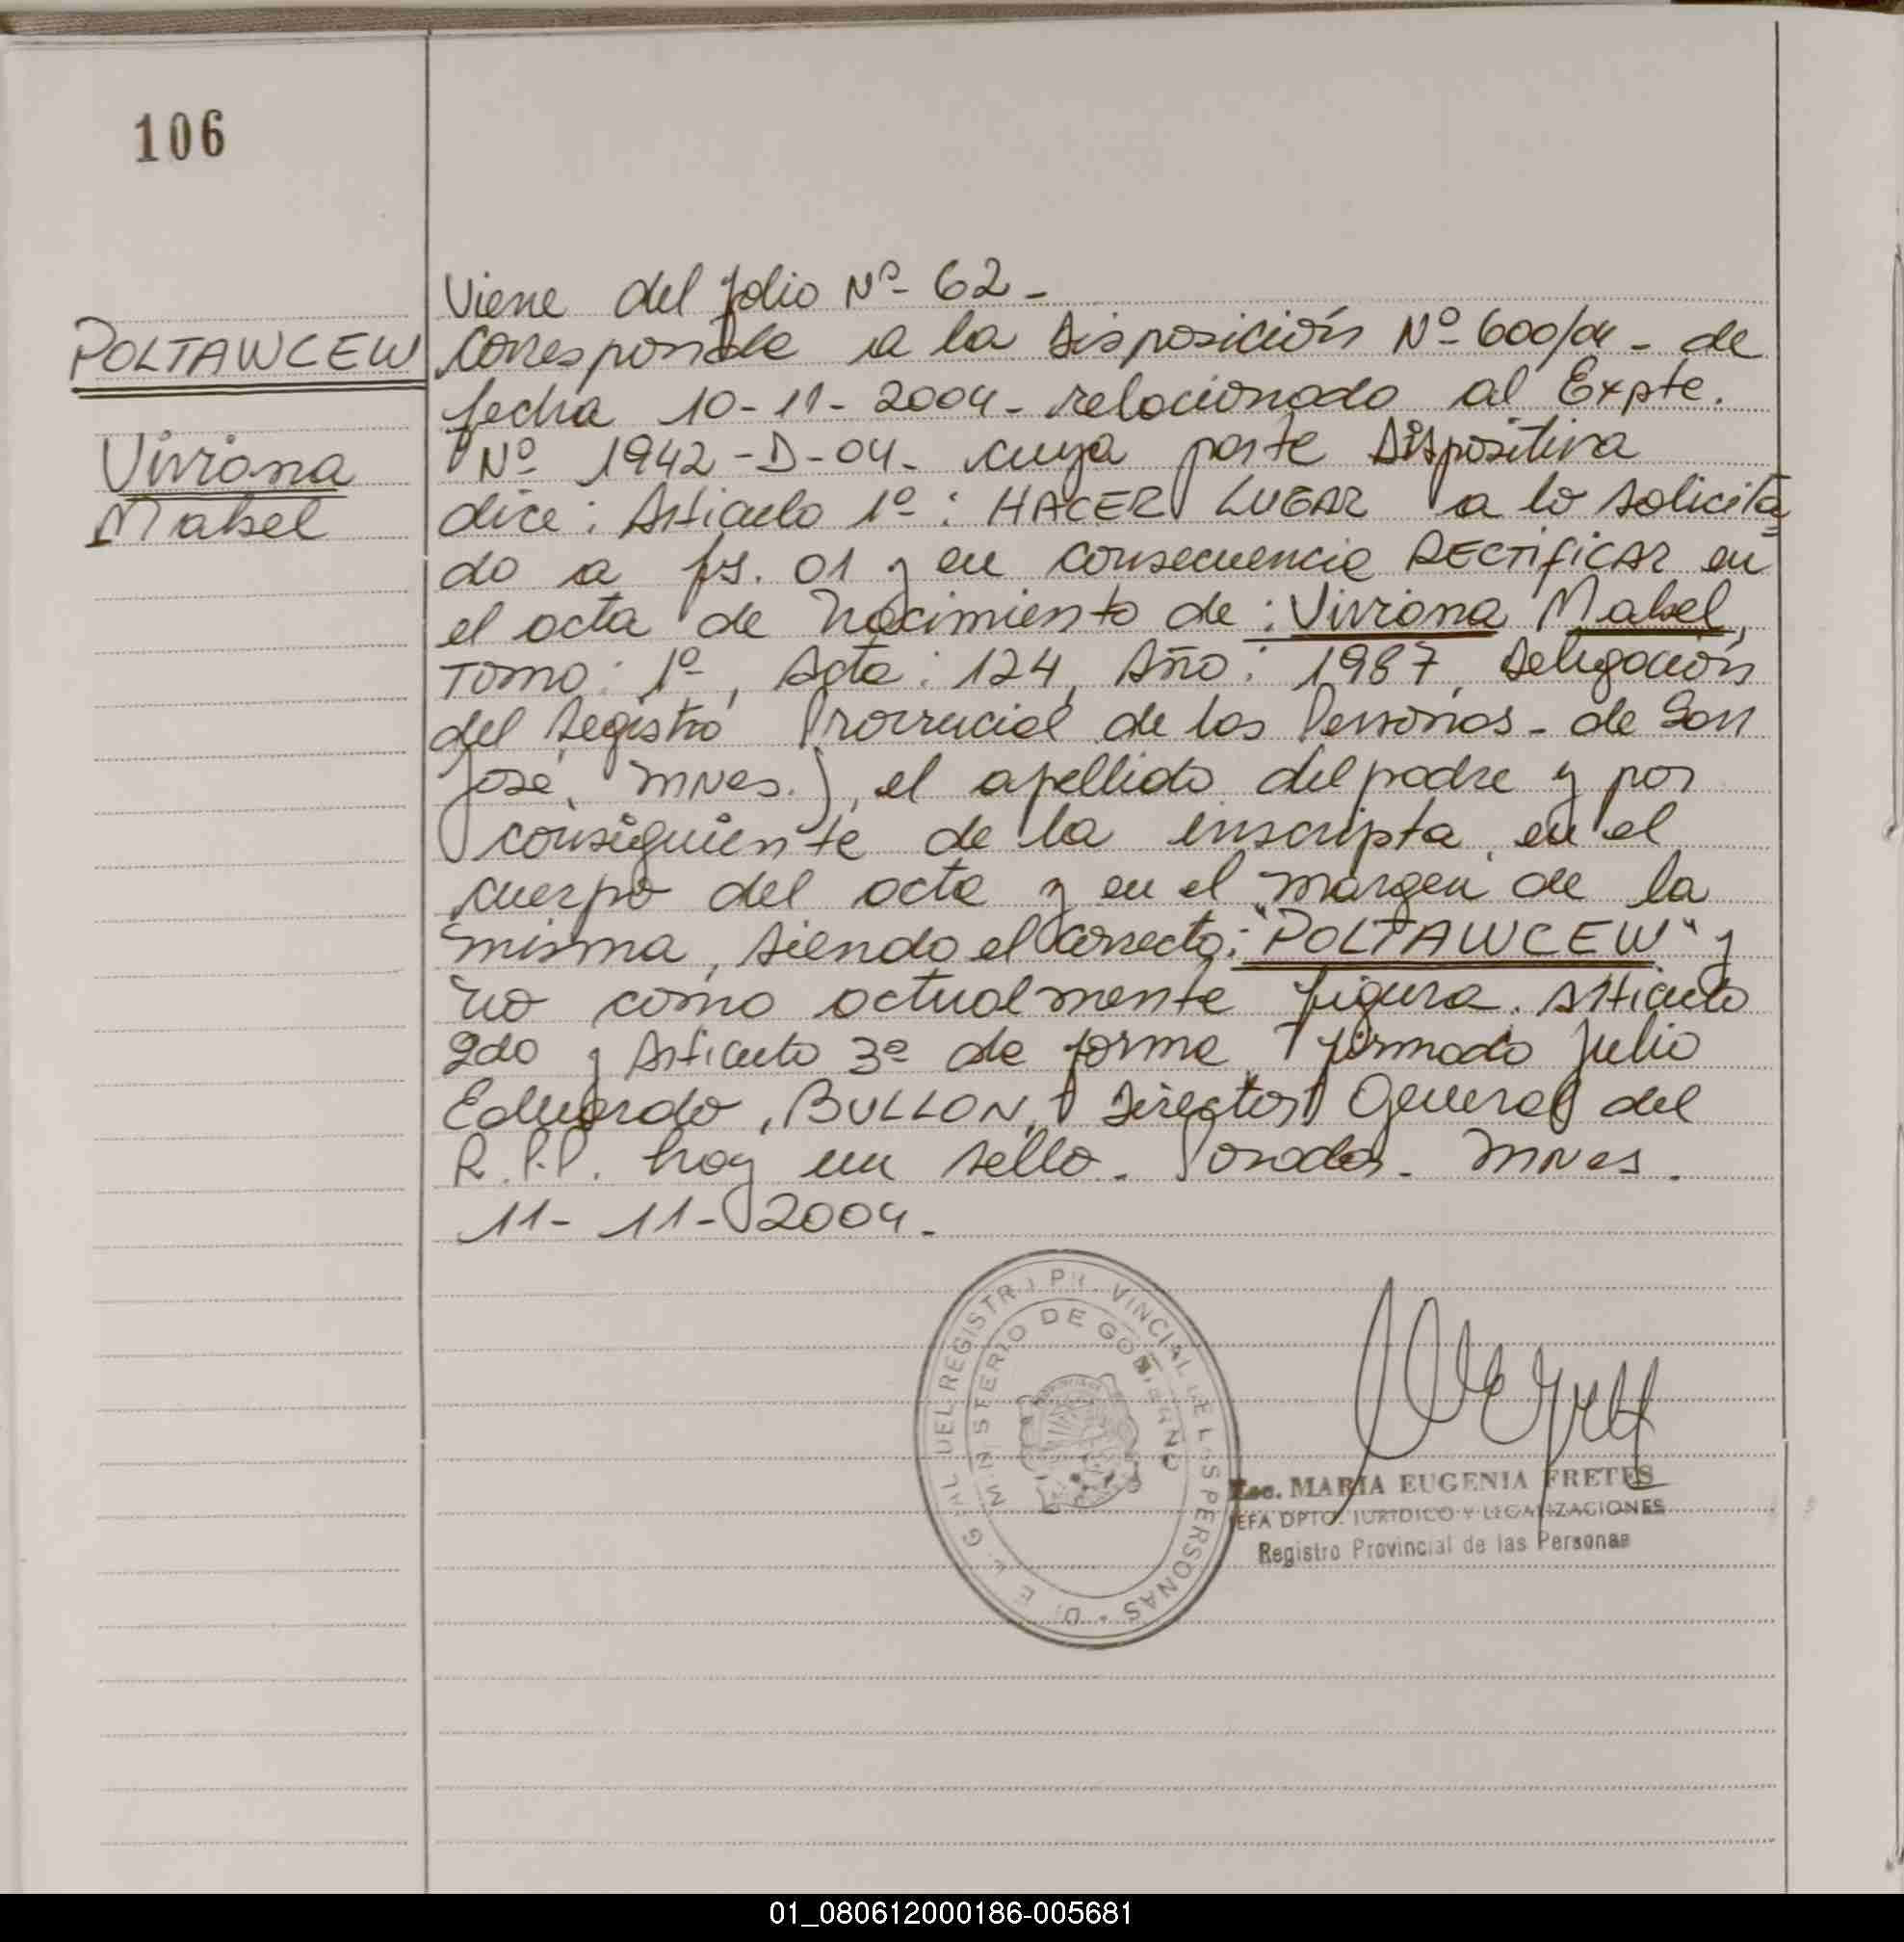 106
POLTAWCEW
Viviana
Mabel
Viene del folio Nº 62-
Corresponde a la Disposición Nº 600/04 - de
fecha 10-11-2004- relacionado al Expte.
Nº 1942-D-04- cuya parte Dispositiva
dice: Articulo 1º: HACER LUGAR a lo solicita
do a fs. 01 y en consecuencia RECTIFICAR en
el acta de nacimiento de: Viviana Mabel,
Tomo: 1º, Acta: 124, Año: 1987, Delegación
del Registro Provincial de las Personas - de San
José, MNes.), el apellido del padre y por
consiguiente de la inscripta, en el
cuerpo del acta y en el margen de la
misma, siendo el correcto: "POLTAWCEW" y
no como actualmente figura. Articulo
2do y Articulo 3º de forma, firmado Julio
Eduardo, BULLON, Director General del
R.P.P. hay un sello. Posadas - MNes.
11-11-2004-
GRAL DEL REGISTRO PROVINCIAL DE LAS PERSONAS
MINISTERIO DE GOBIERNO
MARIA EUGENIA FRETES
JEFA DPTO. JURIDICO Y LEGALIZACIONES
Registro Provincial de las Personas
01_080612000186-005681